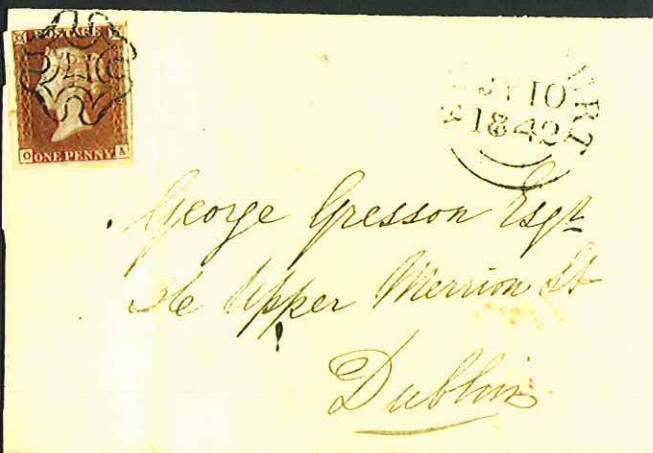 POSTAGE
O ONE PENNY A
JY 10
1842
George Gresson Esqr
Upper Merrion St
Dublin